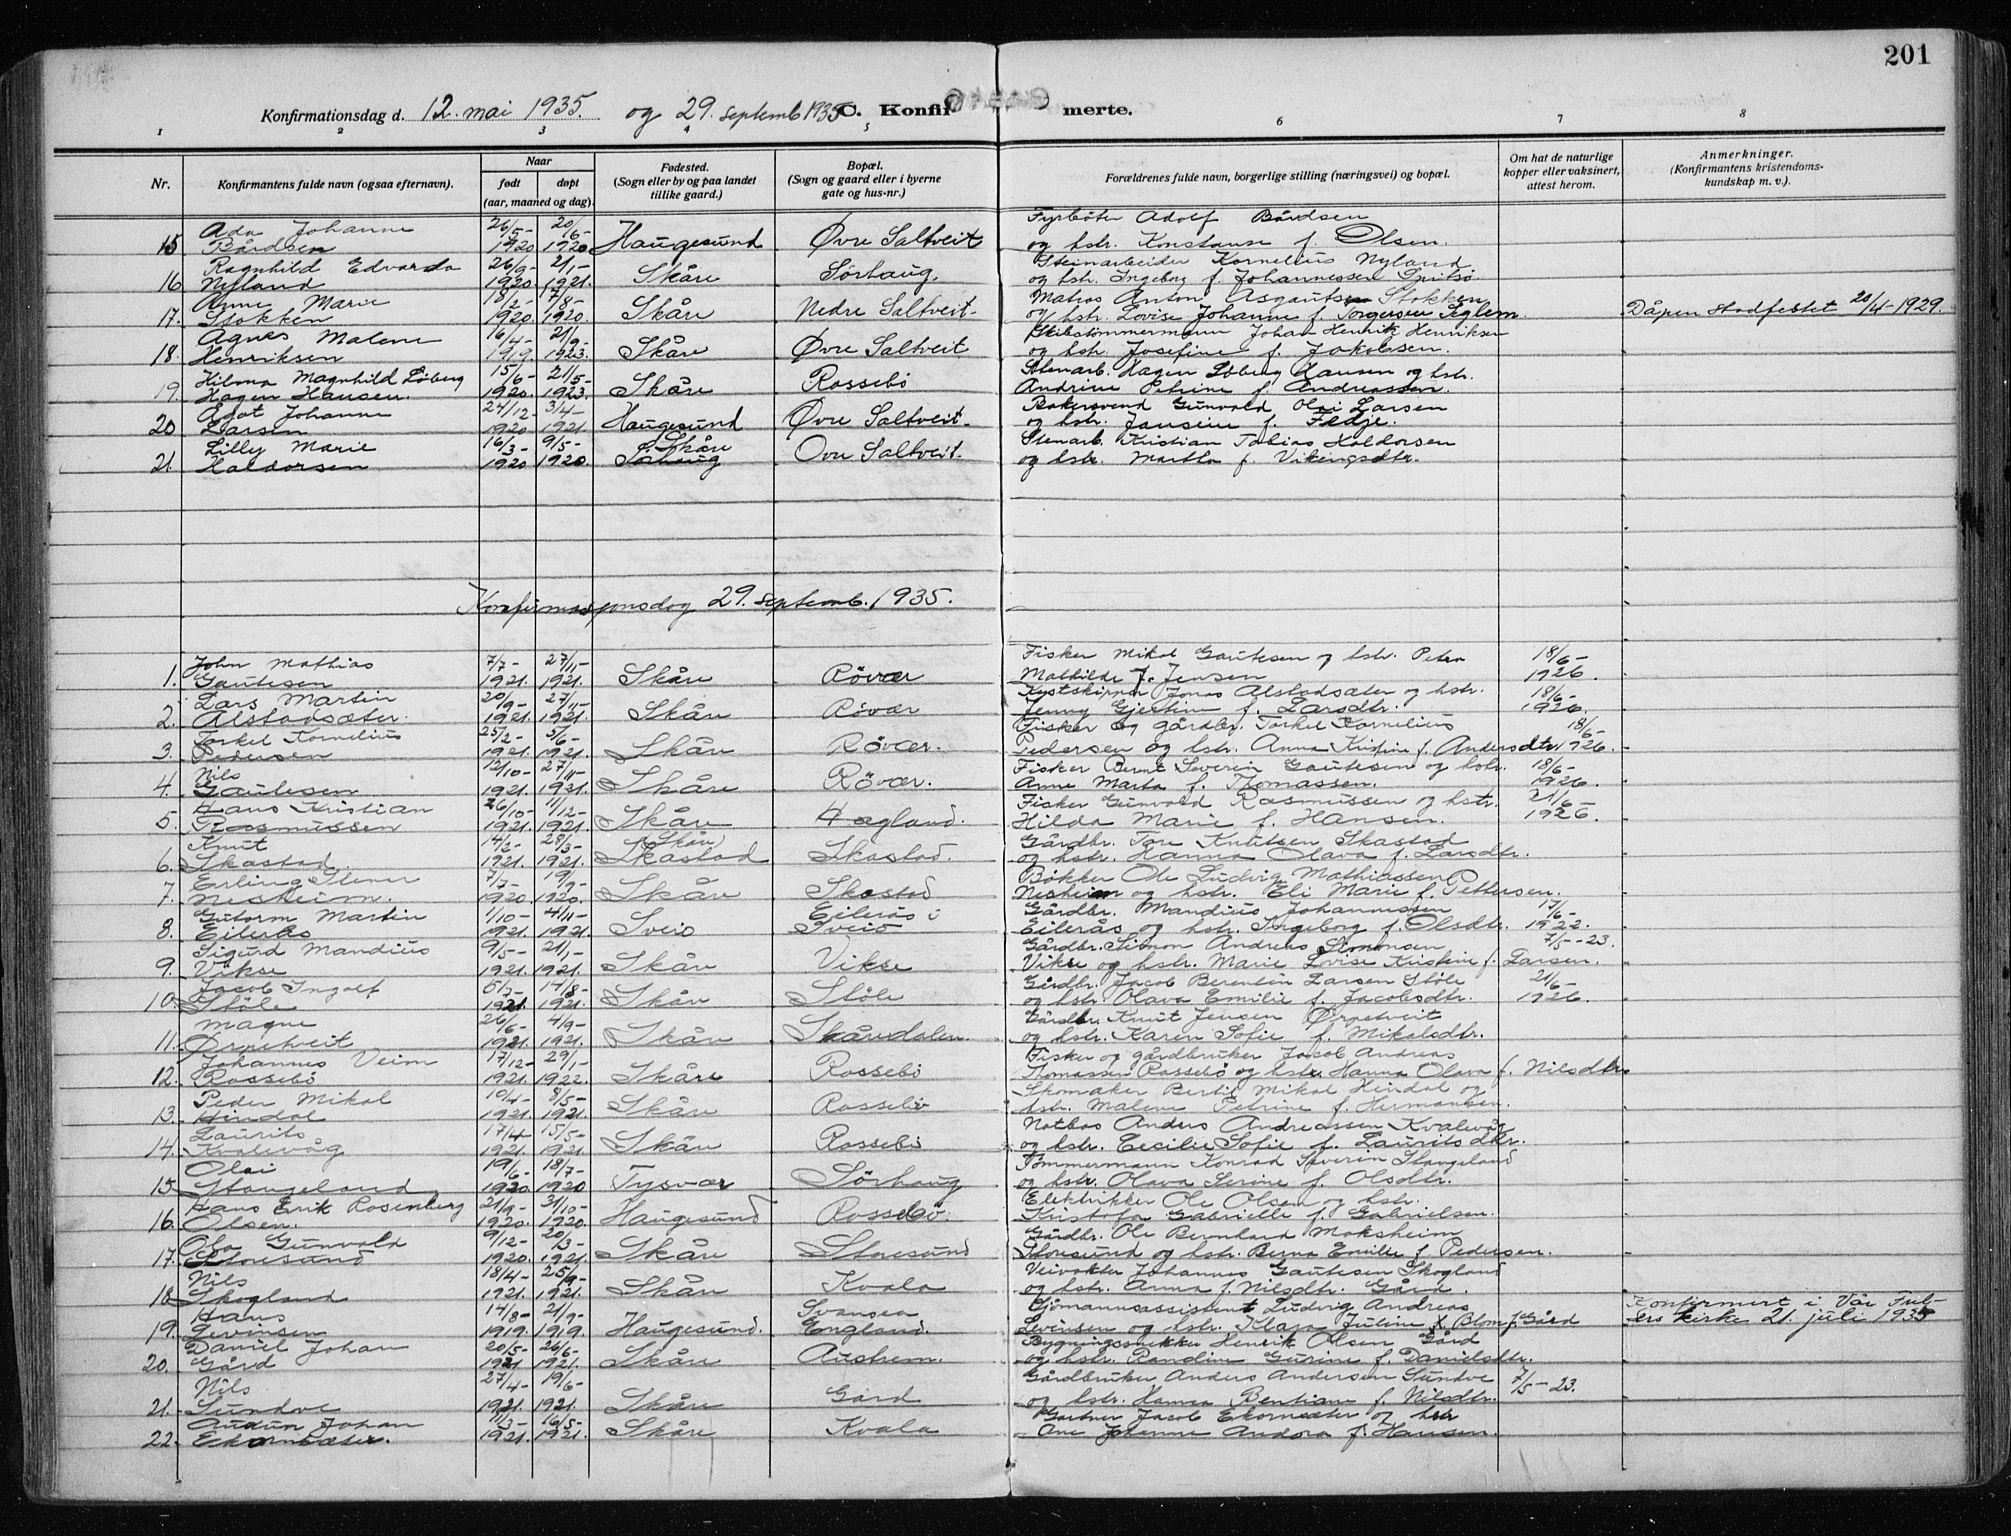 201
Konfirmationsdag d. 12. mai 1935. og 29. septemb 1935 C. Konfirmerte.
1 2 3 4 5 6 7 8
Nr. Konfirmantens fulde navn (ogsaa efternavn). Naar født døpt (aar, maaned og dag). Fødested. (Sogn eller by og paa landet tillike gaard.) Bopæl. (Sogn og gaard eller i byerne gate og hus-nr.) Forældrenes fulde navn, borgerlige stilling (næringsvei) og bopæl. Om hat de naturlige kopper eller vaksinert, attest herom. Anmerkninger. (Konfirmantens kristendomskundskap m. v.).
Ada Johanne 26/5- 20/6- Fyrbøter Adolf Bårdsen
15 Bårdsen 1920 1920 Haugesund Øvre Saltveit og hstr. Konstanse f. Olsen.
Ragnhild Edvarda 26/9- 21/1- Steinarbeider Kornelius Nyland
16 Nyland 1920. 1921. Skåre Sörhaug. og hstr. Ingeborg f. Johannessen
Anne Marie 18/2- 7/8- Matros Anton Asgautsen Stokken
17. Stokken 1920 1920. Skåre Nedre Saltveit- og hstr. Lovise Johanne f. Torgersen Seglem. Dåpen stadfestet 20/4-1929.
Agnes Malene 16/4- 21/9- Skibstømmermann Johan Henrik Henriksen
18. Henriksen 1919. 1923. Skåre Øvre Saltveit og hstr. Josefine f. Jakobsen.
Hilma Magnhild Löberg 15/6- 21/5- Stenarb. Hagen Löberg Hansen og hstr.
19. Hagen Hansen. 1920. 1923. Skåre Rossebö Andrine Petrine f. Andreassen.
Johanne 24/12- 3/4- Bakersvend Gunvald Olai Larsen
20 Larsen 1920 1921 Haugesund Øvre Saltveit. og hstr. f. Fedje.
Lilly Marie 16/3- 9/5- Skåre Stenarb. Kristian Tobias Haldorsen
21. Haldorsen 1920 1920. Sörhaug Øvre Saltveit. og hstr. Martha f. Vikingsdtr.
Konfirmasjonsdag 29. septemb. 1935.
John Mathias 7/7- 27/11- Fisker Mikal Gautesen og hstr. Petra 18/6-
1. Gautesen 1921. 1921. Skåre Rövær Mathilde f. Jensen 1926.
Lars Martin 20/9- 27/11- Kystskipper Jonas Alstadsæter og hstr. 18/6-
2. Alstadsæter. 1921. 1921. Skåre Rövær Jenny Gjertine f. Larsdtr. 1926.
Torkel Kornelius 25/2- 5/6- Fisker og gårdbr. Torkel Kornelius 18/6-
3. Pedersen 1921. 1921. Skåre Rövær. Pedersen og hstr. Anna Kristine f. Andersdtr. 1926.
Nils 12/10- 27/11- Fisker Bernt Severin Gautesen og hstr. 18/6-
4. Gautesen 1921. 1921. Skåre Rövær. Anne Marta f. Thomassen. 1926.
Hans Kristian 26/10- 11/12- Fisker Gunvald Rasmussen og hstr. 21/6-
5. Rasmussen 1921. 1921. Skåre Hagland. Hilda Marie f. Hansen. 1926.
Knut 14/2- 28/3- (Skåre) Gårdbr. Tore Knutsen Skastad
6. Skastad 1921. 1921. Skastad Skastad. og hstr. Hanna Olava f. Larsdtr.
Erling Stener 7/7- 19/9- Bøkker Ole Ludvig Mathiassen
7. Nesheim. 1920. 1920. Skåre Skastad Nesheim og hstr. Eli Marie f. Pettersen.
Gutorm Martin 1/10- 4/11- Eilerås i Gårdbr. Mandius Johannessen 17/6-
8. Eilerås 1921. 1921. Sveio Sveio Eilerås og hstr. Ingeborg f. Olsdtr. 1922.
Sigurd Mandius 9/5- 21/1- Gårdbr. Simon Andreas Simonsen 7/5--23.
9. Vikse 1921. 1921. Skåre Vikse Vikse og hstr. Marie Lovise Kristine f. Larsen.
Jacob Ingolf 5/7- 14/8- Gårdbr. Jacob Berentin Larsen Støle 21/6-
10. Støle 1921. 1921. Skåre Støle og hstr. Olava Emilie f. Jacobsdtr. 1926.
Magne 26/6- 4/9- Gårdbr. Knut Jensen Ørpetveit
11. Ørpetveit 1921. 1921. Skåre Skåredalen. og hstr. Karen Sofie f. Mikalsdtr.
Johannes Veim 17/12- 29/1- Fisker og gårdbruker Jacob Andreas
12. Rossebö 1921. 1922. Skåre Rossebö Thomassen Rossebö og hstr. Hanna Olava f. Nilsdtr.
Peder Mikal 10/4- 8/5- Skomaker Bertil Mikal Hindal og
13. Hindal 1921. 1921. Skåre Rossebö hstr. Malene Petrine f. Hermansen.
Laurits 17/4- 15/5- Notbas Anders Andreassen Kvalevåg
14. Kvalevåg 1921. 1921 Skåre Rossebö og hstr. Cecilie Sofie f. Lauritsdtr.
Olai 19/6- 18/7- Tømmermann Konrad Severin Stangeland
15. Stangeland 1920 1920 Tysvær Sörhaug og hstr. Olava Serine f. Olsdtr.
Hans Erik Rosenberg 21/9- 31/10- Elektrikker Ole Olsen og hstr.
16. Olsen. 1920. 1920. Haugesund Rossebö. Kristofa Gabrielle f. Gabrielsen.
Ola Gunvald 9/12- 20/3- Gårdbr. Ole Bernhard Moksheim
17. Storesund 1920. 1921. Skåre Storesund Storesund og hstr. Berna Emilie f. Pedersen.
Nils 18/4- 25/9- Veivokter Johannes Gautesen Skogland
18. Skogland 1921. 1921. Skåre Kvala og hstr. Anna f. Nilsdtr. Gård.
Hans 14/8- 21/9- Svansea Sjömannsassistent Ludvig Andreas Konfirmert i Vår Frel-
19. Levinsen 1919. 1919. Haugesund. England. Levinsen og hstr. Klara Juline Blom f. Gård sers kirke 21. juli 1935
Daniel Johan 20/5- 26/6- Bygningssnekker Henrik Olsen Gård
20. Gård 1921 1921. Skåre Austrem. og hstr. Randine Gurine f. Danielsdtr.
Nils 27/4- 19/6- Gårdbruker Anders Andersen Sundve 7/5-23.
21. Sundve 1921. 1921. Skåre Gård og hstr. Hanna Bentiane f. Nilsdtr.
Audun Johan 11/3- 16/5- Gartner Jacob Ekornsæter og hstr
22. Ekornsæter. 1921. 1921. Skåre Kvala Ane Johanne Andora f. Hansen.